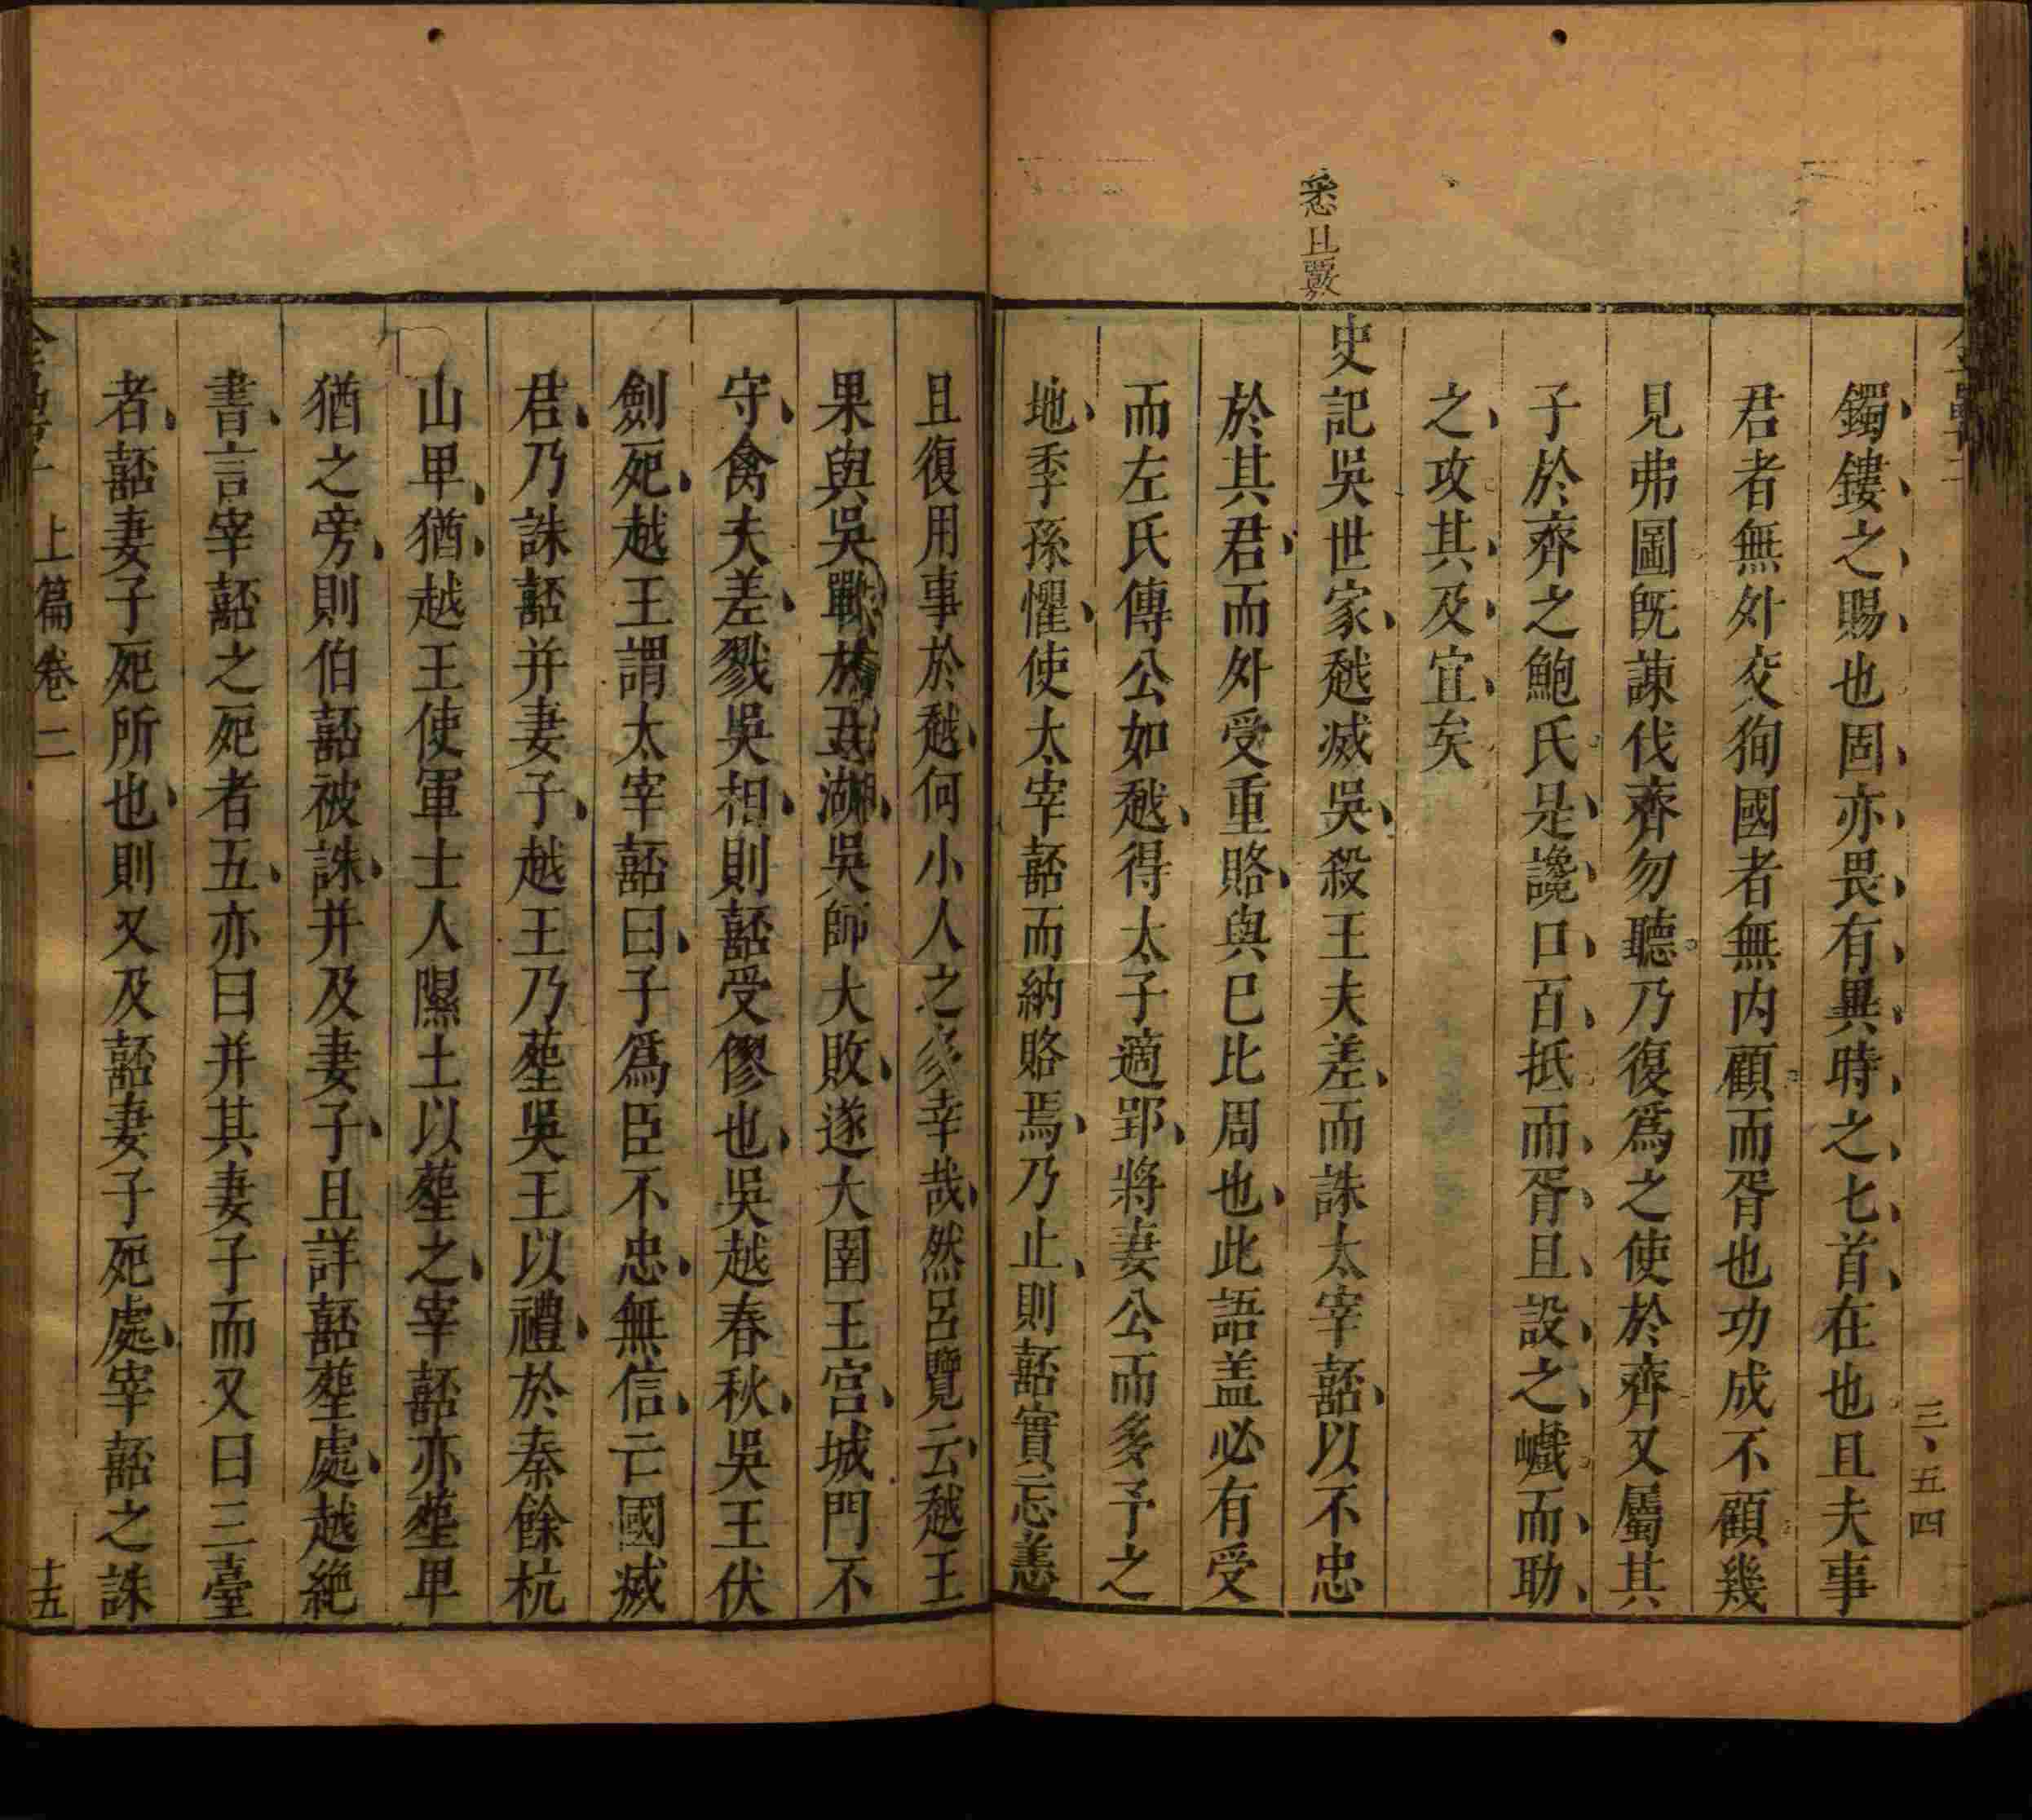 三五四
鐲鏤之賜也固亦畏有異時之七首在也且夫事
君者無外交徇國者無内顧而胥也功成不顧幾
見弗圖旣諫伐齊勿聽乃復爲之使於齊又屬其
子於齊之鮑氏是讒口百抵而胥且設之巇而助
之攻其及宜矣
悉且覈
史記吳世家越滅吳殺王夫差而誅太宰嚭以不忠
於其君而外受重賂與巳比周也此語盖必有受
而左氏傳公如越得太子適郢將妻公而多予之
地季孫懼使太宰嚭而納賂焉乃止則嚭實忘恙
且復用事於越何小人之多幸哉然呂覽云越王
果與吳戰於五湖吳師大敗遂大圍王宮城門不
守禽夫差戮吳相則嚭受僇也吳越春秋吳王伏
劍死越王謂太宰嚭曰子爲臣不忠無信亡國滅
君乃誅嚭并妻子越王乃塟吳王以禮於秦餘杭
山卑猶越王使軍士人隰土以塟之宰嚭亦塟卑
猶之旁則伯嚭被誅并及妻子且詳嚭塟處越絶
書言宰嚭之死者五亦曰并其妻子而又曰三臺
者嚭妻子死所也則又及嚭妻子死處宰嚭之誅
上篇卷二
十五